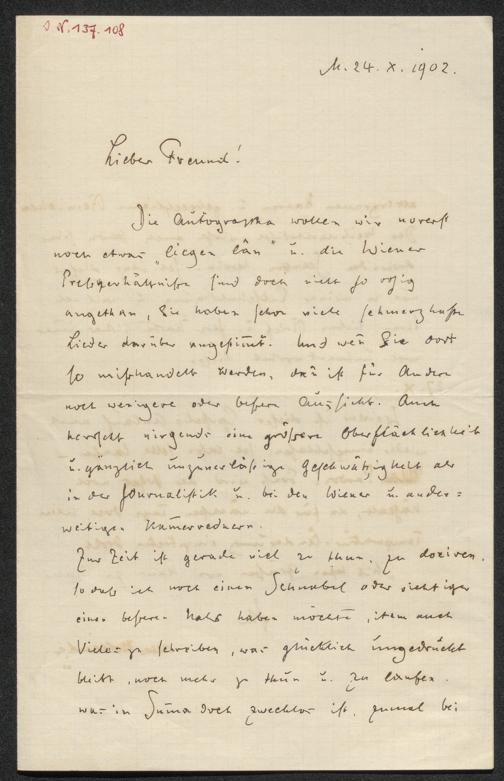 I. N. 137.108
M. 24. X. 1902.
Lieber Freund!
Die Autographa wollen wir vorerst
noch etwas „liegen lân" u. die Wiener
Preßverhältnisse sind doch nicht so rosig
angethan, Sie haben schon viele schmerzhafte
Lieder darüber angestimt. Und wen̄ Sie dort
so mißhandelt werden, dan̄ ist für Andere
noch wenigere oder bessere Aussicht. Auch
herrscht nirgends eine größere Oberflächlichkeit
u. gänzlich unzuverlässige Geschwätzigkeit als
in der Journalistik u. bei den Wiener u. ander=
weitigen Kam̄errednern.
Zur Zeit ist gerade viel zu thun, zu doziren.
so daß ich noch einen Schnabel oder richtiger
einen besseren Hals haben möchte, item auch
Vieles zu schreiben, was glücklich ungedruckt
bleibt, noch mehr zu thun u. zu laufen.
was in Sum̄a doch zwecklos ist, zumal bei